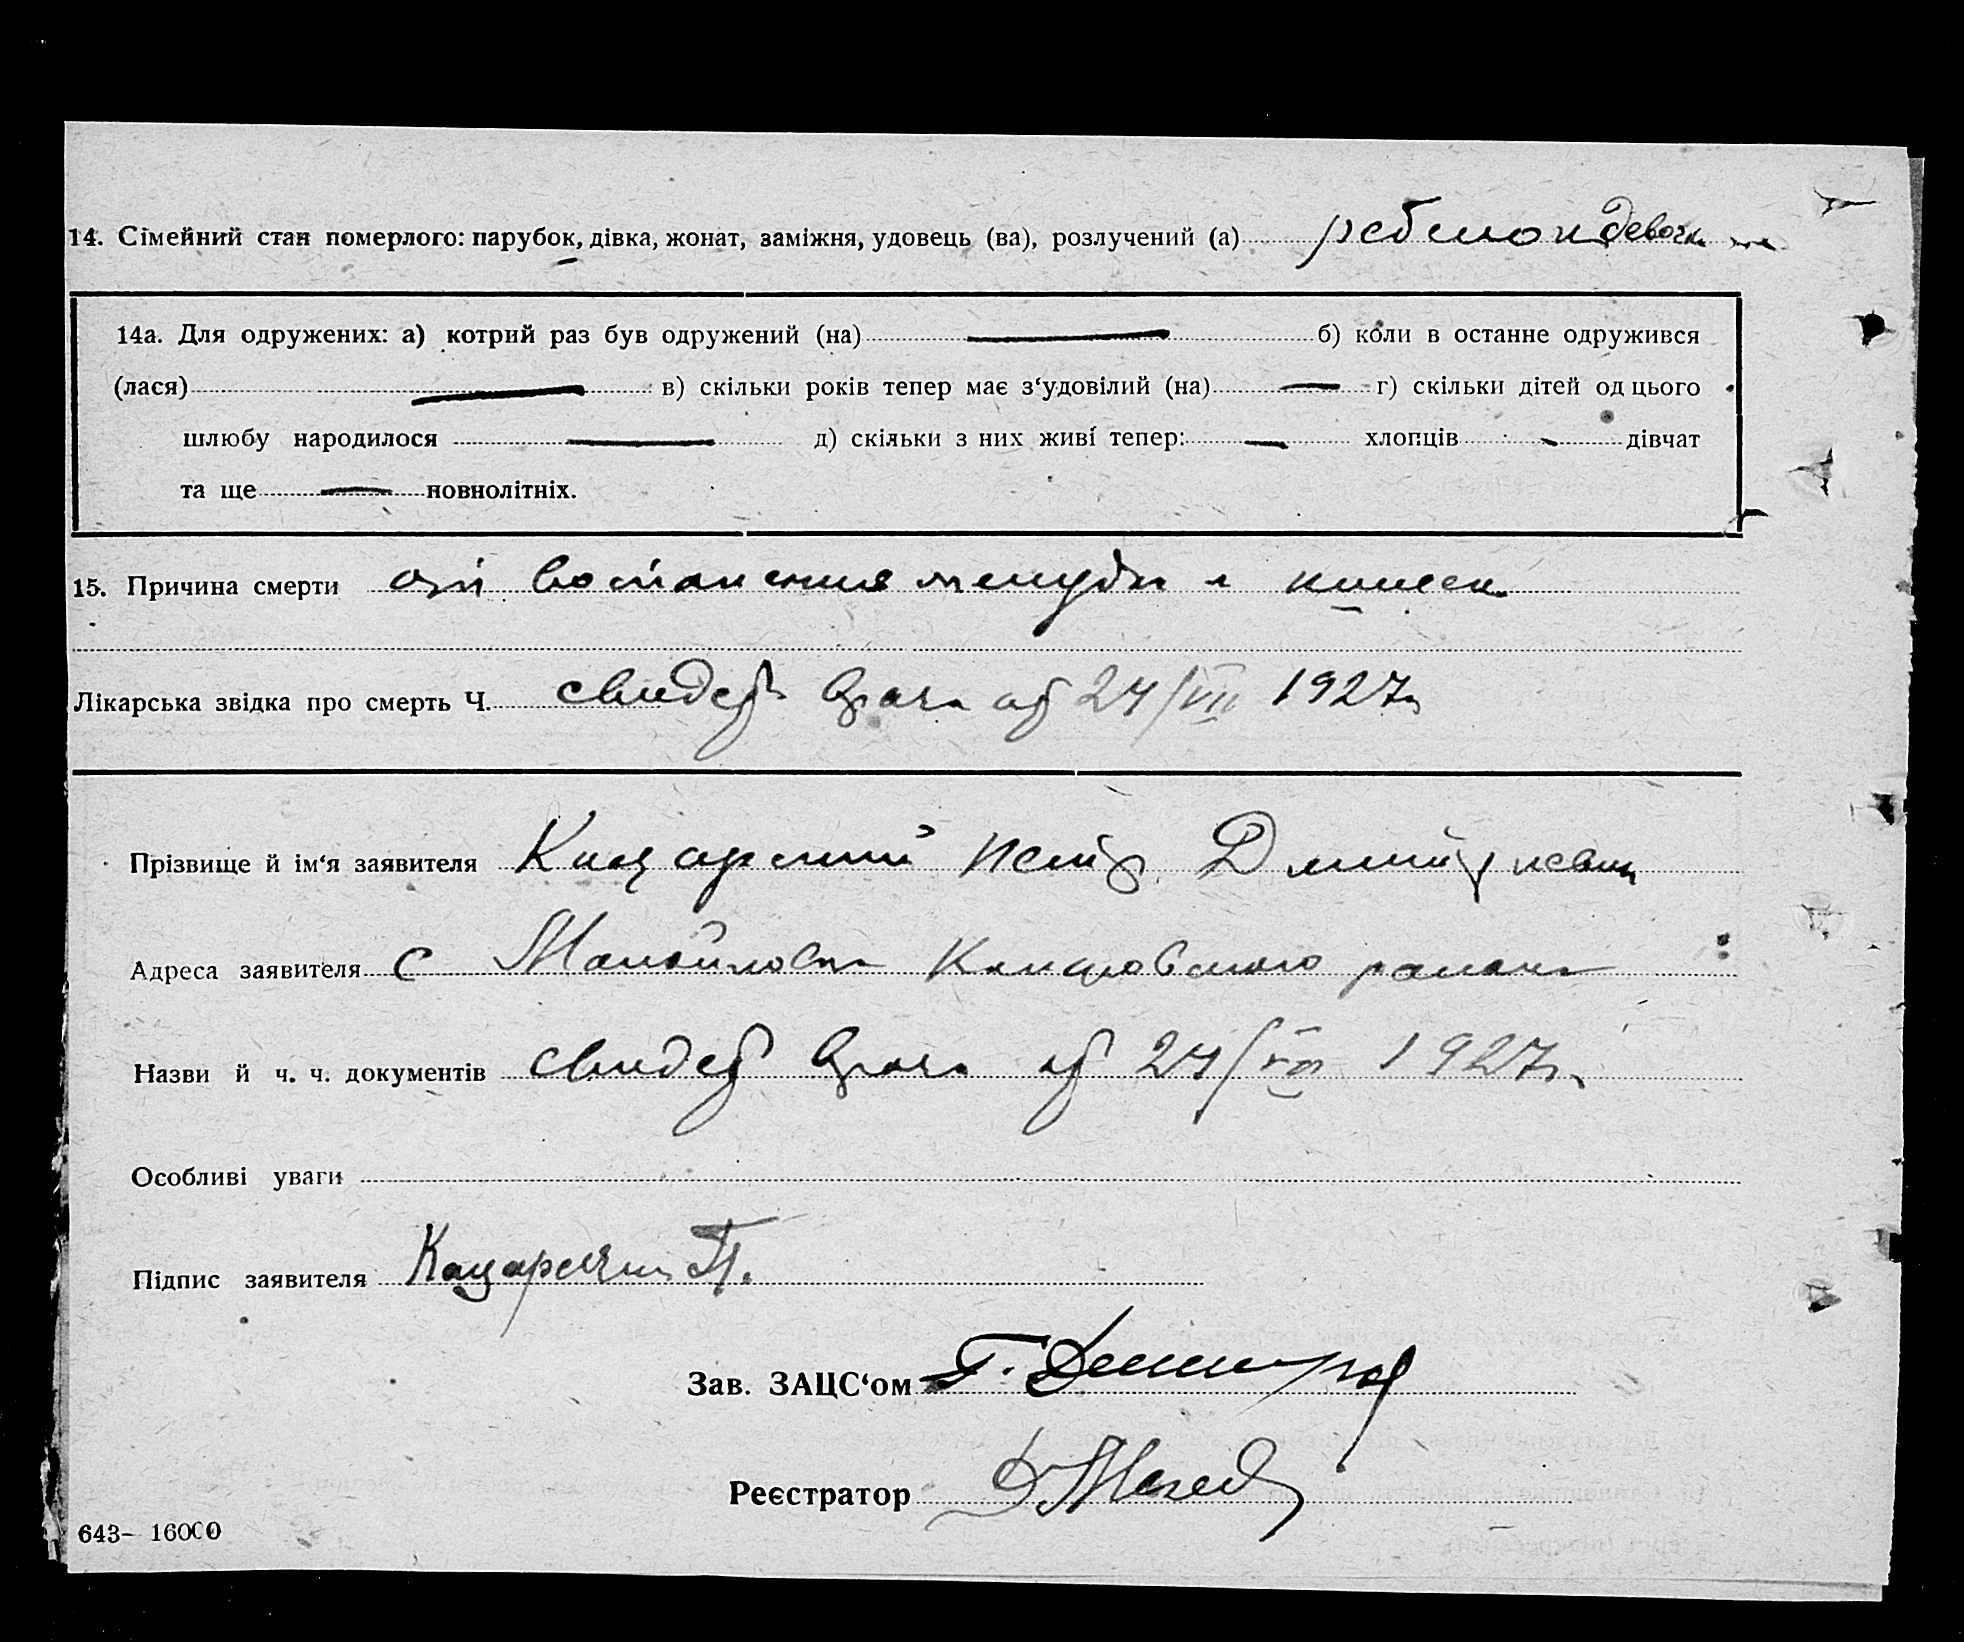 14. Сімейний стан померлого: парубок, дівка, жонат, заміжня, удовець (ва), розлучений (а) ребенок девочка
14а. Для одружених: а) котрий раз був одружений (на) — б) коли в останне одружився
(лася) — в) скільки років тепер має з‘удовілий (на) — г) скільки дітей од цього
шлюбу народилося — д) скільки з них живі тепер: — хлопців - дівчат
та ще — повнолітніх.
15. Причина смерти от воспаления желудка и кишек
Лікарська звідка про смерть Ч. свидет врача от 24/VII 1927г
Прізвище й ім‘я заявителя Петр Дмитриевич
Адреса заявителя с района
Назви й ч. ч. документів свидет врача от 24/VII 1927г.
Особливі уваги
Підпис заявителя П.
Зав. ЗАЦС‘ом Г.
Реєстратор
643– 16000